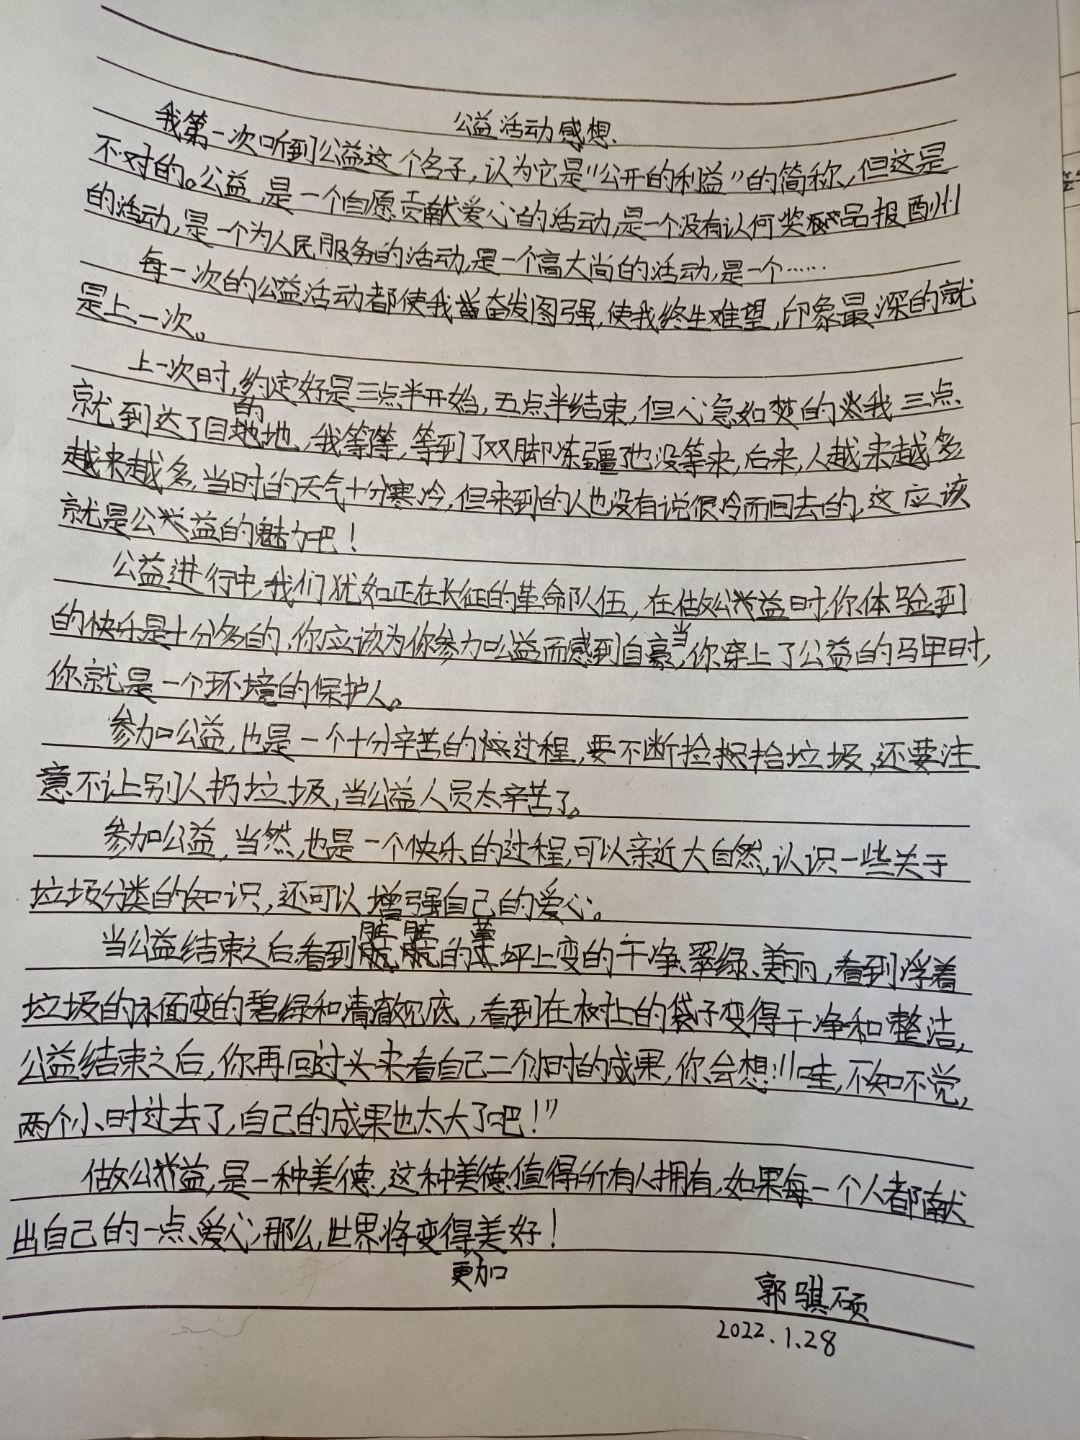 公益活动感想
我第一次听到公益这个名子，认为它是“公开的利益”的简称，但这是
不对的。公益，是一个自愿贡献爱心的活动，是一个没有认何奖品报酬
的活动，是一个为人民服务的活动，是一个高大尚的活动，是一个……
每一次的公益活动都使我奋发图强，使我终生难望，印象最深的就
是上一次。
上一次时，约定好是三点半开始，五点半结束，但心急如焚的我三点
就到达了目的地，我等等，等到了双脚冻疆也没等来，后来，人越来越多
越来越多，当时的天气十分寒冷，但来到的人也没有说很冷而回去的，这应该
就是公益的魅力吧！
公益进行中，我们犹如正在长征的革命队伍，在做公益时，你体验到
的快乐是十分多的，你应该为你参加公益而感到自豪，当你穿上了公益的马甲时，
你就是一个环境的保护人。
参加公益，也是一个十分辛苦的过程，要不断捡拾垃圾，还要注
意不让别人扔垃圾，当公益人员太辛苦了。
参加公益，当然，也是一个快乐的过程，可以亲近大自然，认识一些关于
垃圾分类的知识，还可以增强自己的爱心。
当公益结束之后看到脏脏的草坪上变的干净、翠绿、美丽，看到浮着
垃圾的水面变的碧绿和清澈见底，看到在树上的袋子变得干净和整洁，
公益结束之后，你再回过头来看自己二个小时的成果，你会想：“哇，不知不觉，
两个小时过去了，自己的成果也太大了吧！”
做公益，是一种美德，这种美德值得所有人拥有，如果每一个人都献
出自己的一点爱心，那么，世界将变得更加美好！
郭骐硕
2022.1.28